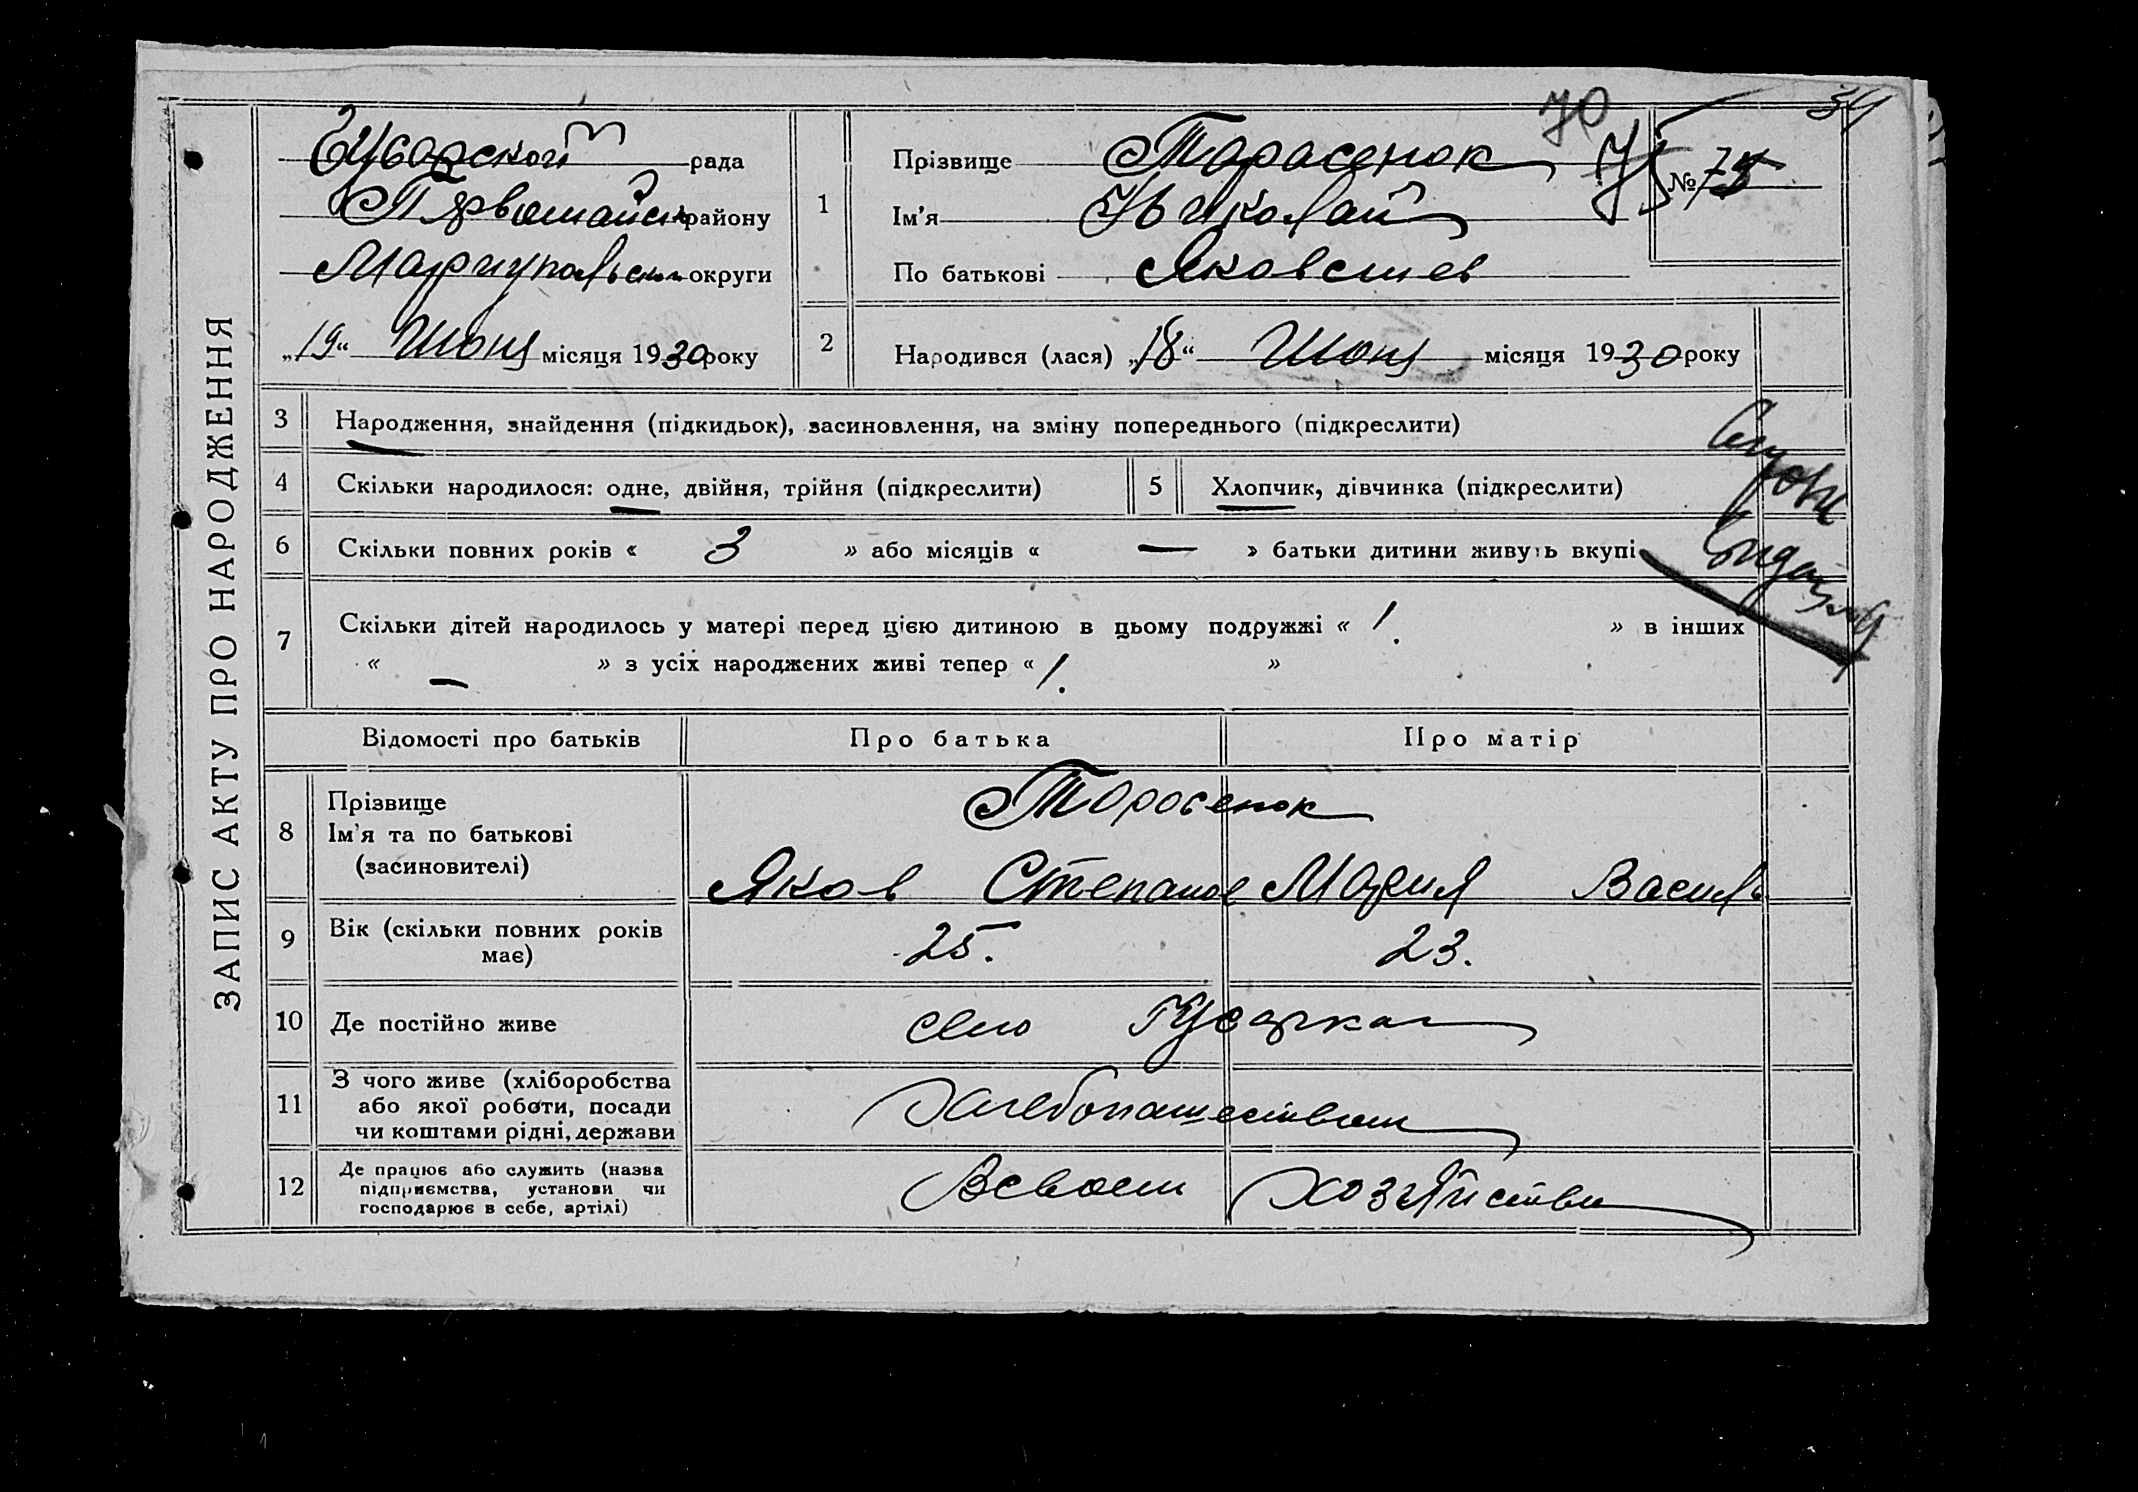 ЗАПИС АКТУ ПРО НАРОДЖЕННЯ
Гусарской рада
Первомайск району
Мариупольской округи
„19“ Июня місяця 1930 року
70
39
1 Прізвище Тарасенок
№ 75
Ім’я Николай
По батькові Яковлев
2 Народився (лася) „18“ Июня місяця 1930 року
3 Народження, знайдення (підкидьок), засиновлення, на зміну попереднього (підкреслити)
4 Скільки народилося: одне, двійня, трійня (підкреслити) 5 Хлопчик, дівчинка (підкреслити)
6 Скільки повних років « 3 » або місяців « — » батьки дитини живуть вкупі
7 Скільки дітей народилось у матері перед цією дитиною в цьому подружжі « 1. » в інших
« — » з усіх народжених живі тепер « 1. »
Відомості про батьків Про батька Про матір
8 Прізвище
Ім’я та по батькові
(засиновителі)
Тарасенок
Яков Степанов Мария Василь
9 Вік (скільки повних років
має)
25. 23.
10 Де постійно живе село Гусарка
11 З чого живе (хліборобства
або якої роботи, посади
чи коштами рідні, держави
Хлебопашеством
12 Де працює або служить (назва
підприємства, установи чи
господарює в себе, артілі)
Всвоем хозяйстве